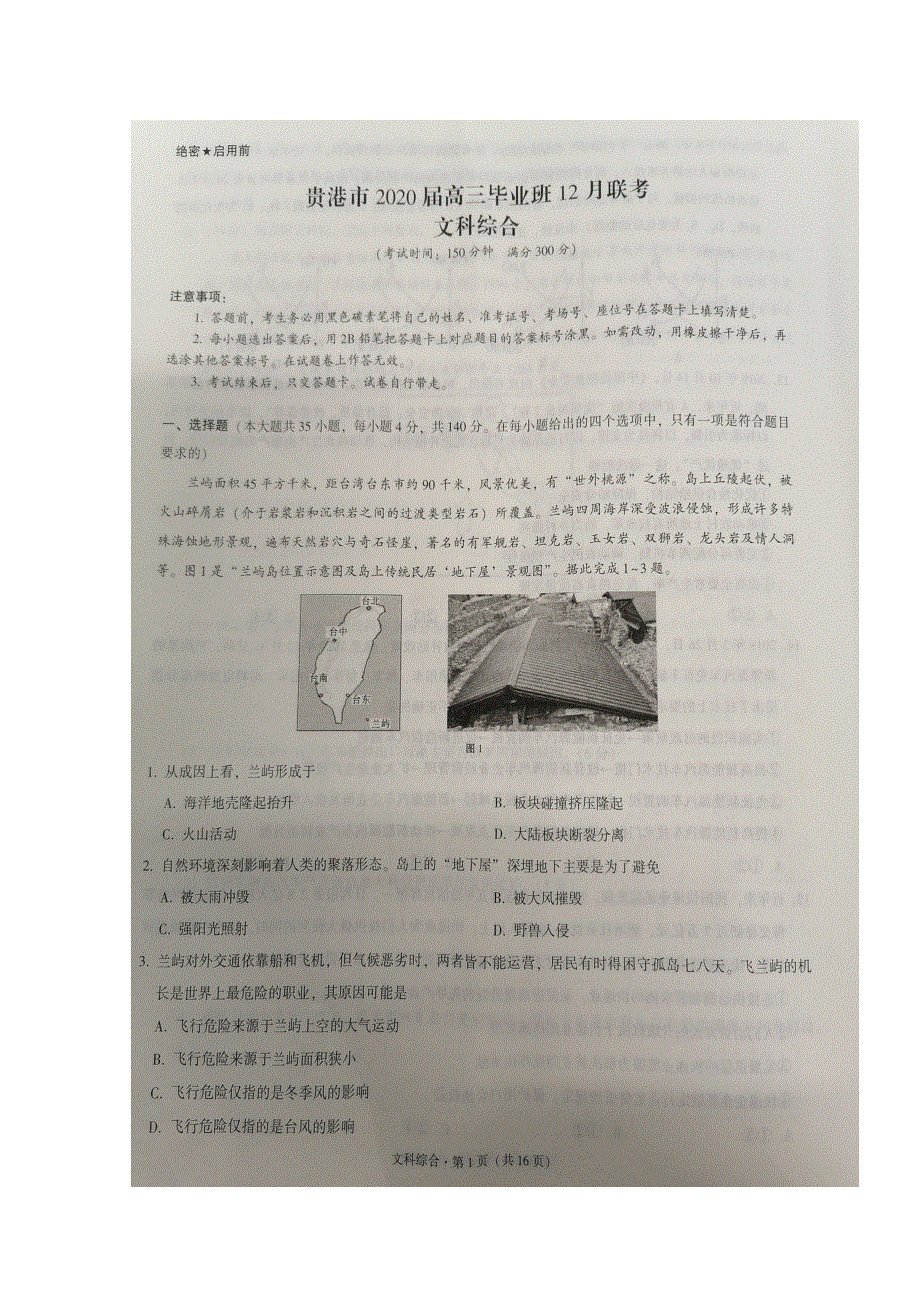 绝密★启用前
贵港市2020届高三毕业班12月联考
文科综合
(考试时间：150分钟 满分300分)
注意事项：
1. 答题前，考生务必用黑色碳素笔将自己的姓名、准考证号、考场号、座位号在答题卡上填写清楚。
2. 每小题选出答案后，用2B铅笔把答题卡上对应题目的答案标号涂黑。如需改动，用橡皮擦干净后，再
选涂其他答案标号。在试题卷上作答无效。
3. 考试结束后，只交答题卡。试卷自行带走。
一、选择题（本大题共35小题，每小题4分，共140分。在每小题给出的四个选项中，只有一项是符合题目
要求的）
兰屿面积45平方千米，距台湾台东市约90千米，风景优美，有“世外桃源”之称。岛上丘陵起伏，被
火山碎屑岩（介于岩浆岩和沉积岩之间的过渡类型岩石）所覆盖。兰屿四周海岸深受波浪侵蚀，形成许多特
殊海蚀地形景观，遍布天然岩穴与奇石怪崖，著名的有军舰岩、坦克岩、玉女岩、双狮岩、龙头岩及情人洞
等。图1是“兰屿岛位置示意图及岛上传统民居‘地下屋’景观图”。据此完成1~3题。
台北
台中
台南
台东
兰屿
图1
1. 从成因上看，兰屿形成于
A. 海洋地壳隆起抬升 B. 板块碰撞挤压隆起
C. 火山活动 D. 大陆板块断裂分离
2. 自然环境深刻影响着人类的聚落形态。岛上的“地下屋”深埋地下主要是为了避免
A. 被大雨冲毁 B. 被大风摧毁
C. 强阳光照射 D. 野兽入侵
3. 兰屿对外交通依靠船和飞机，但气候恶劣时，两者皆不能运营，居民有时得困守孤岛七八天。飞兰屿的机
长是世界上最危险的职业，其原因可能是
A. 飞行危险来源于兰屿上空的大气运动
B. 飞行危险来源于兰屿面积狭小
C. 飞行危险仅指的是冬季风的影响
D. 飞行危险仅指的是台风的影响
文科综合·第1页（共16页）